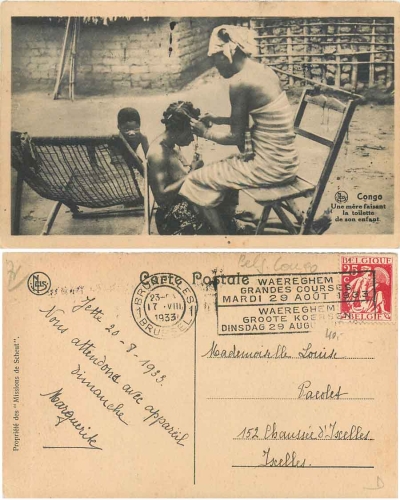 Nels
Congo
Une mère faisant
la toilette
de son enfant.
Carte Postale
NELS
BRUXELLES
1933
BRUSSEL
WAEREGHEM
GRANDES COURSES
MARDI 29 AOÛT 1933
WAEREGHEM
GROTE KOERSEN
DINSDAG 29 AUGUSTUS
BELGIQUE
25
BELGIË
40,-
Jette 20-8-1933.
Nous attendons avec appareil
dimanche
Marguerite
Mademoiselle Louise
Pacolet
152 Chaussée d'Ixelles
Ixelles.
Propriété des "Missions de Scheut"
D